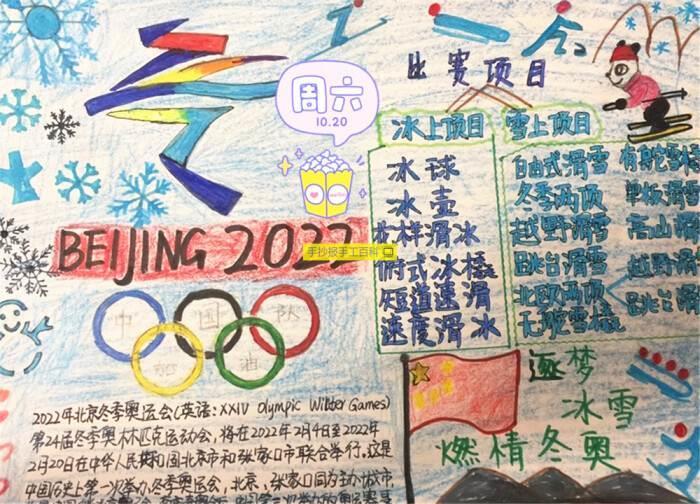 周六
10.20
手抄报手工百科
BEIJING 2022
中 国 队
加 油
比赛项目
冰上项目
雪上项目
冰球
冰壶
花样滑冰
俯式冰橇
短道速滑
速度滑冰
自由式滑雪 有舵雪橇
冬季两项 单板滑雪
越野滑雪 高山滑雪
跳台滑雪 越野滑
北欧两项 跳台滑
无舵雪橇
逐梦
冰雪
燃情冬奥
2022年北京冬季奥运会(英语:XXIV Olympic Winter Games)
第24届冬季奥林匹克运动会,将在2022年2月4日至2022年
2月20日在中华人民共和国北京市和张家口市联合举行,这是
中国历史上第一次举办冬季奥运会,北京、张家口同为主办城市,